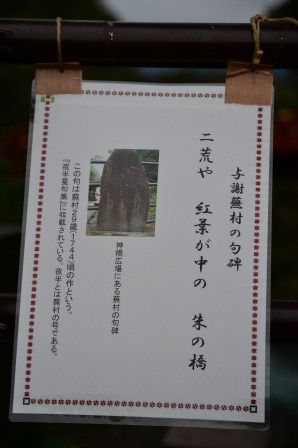 与謝蕪村の句碑
二荒や　紅葉が中の　朱の橋
神橋広場にある蕪村の句碑
この句は蕪村29歳(1744)頃の作という。
『夜半亭句集』に収載されている。夜半とは蕪村の号である。